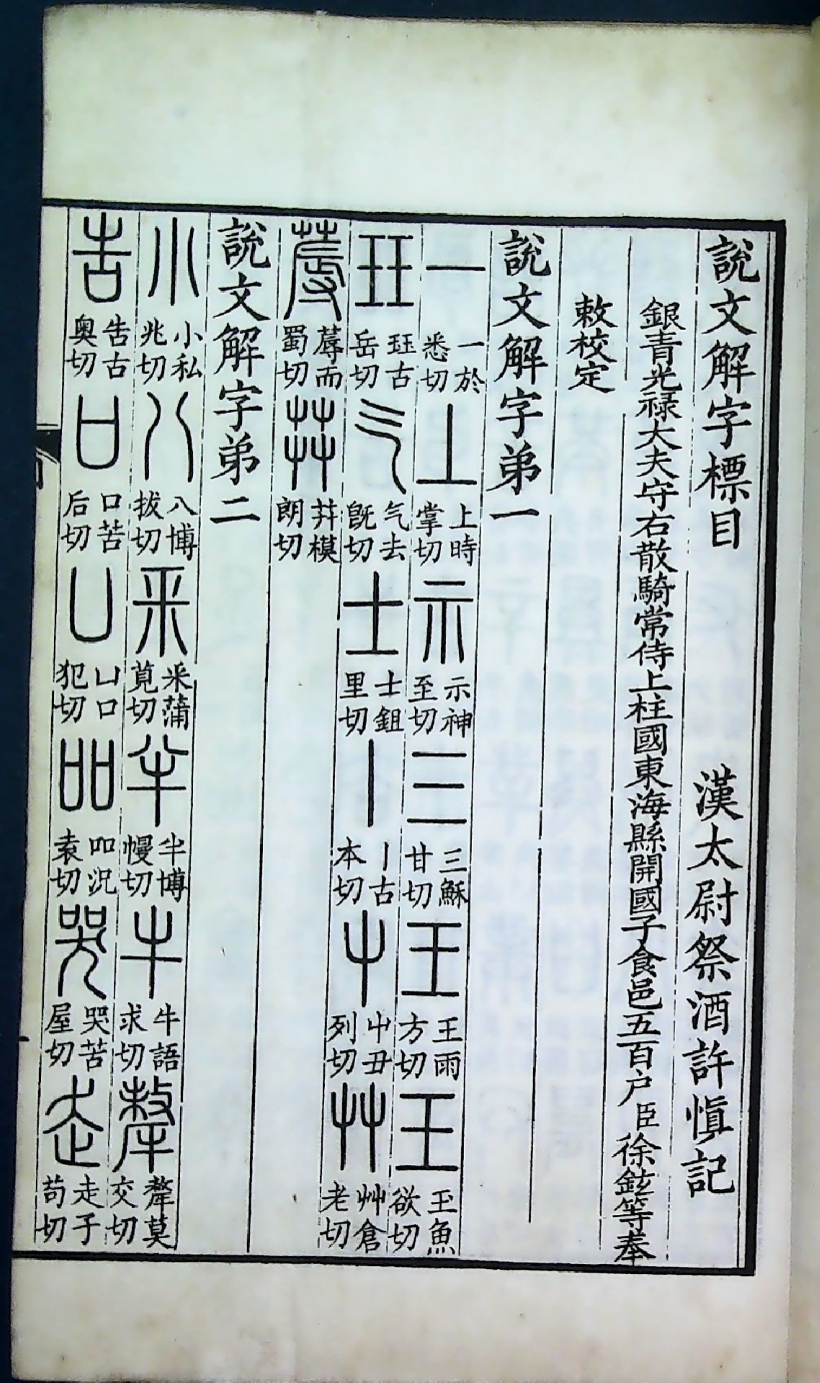 說文解字標目
漢太尉祭酒許愼記
銀青光祿大夫守右散騎常侍上柱國東海縣開國子食邑五百户臣徐鉉等奉
敕校定
說文解字弟一
一 一於悉切 丄 上時掌切 示 示神至切 三 三穌甘切 王 王雨方切 王 玉魚欲切
玨 玨古岳切 气 气去旣切 士 士鉏里切 丨 丨古本切 屮 屮丑列切 艸 艸倉老切
蓐 蓐而蜀切 茻 茻模朗切
說文解字弟二
小 小私兆切 八 八博拔切 釆 釆蒲莧切 半 半博幔切 牛 牛語求切 犛 犛莫交切
告 告古奧切 口 口苦后切 凵 凵口犯切 吅 吅況袁切 哭 哭苦屋切 走 走子苟切